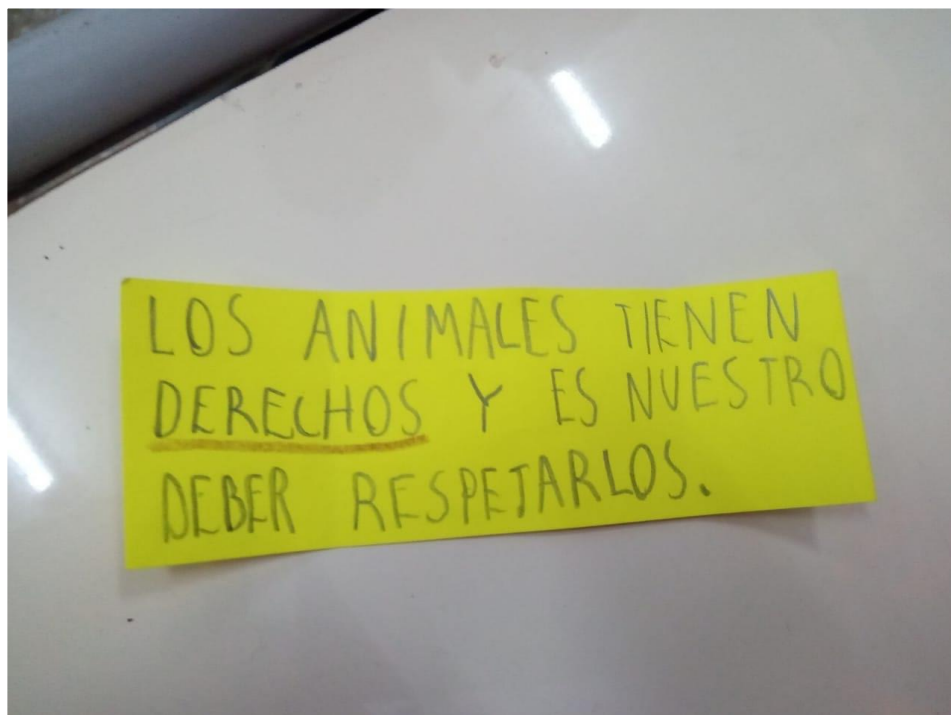 LOS ANIMALES TIENEN
DERECHOS Y ES NUESTRO
DEBER RESPETARLOS.